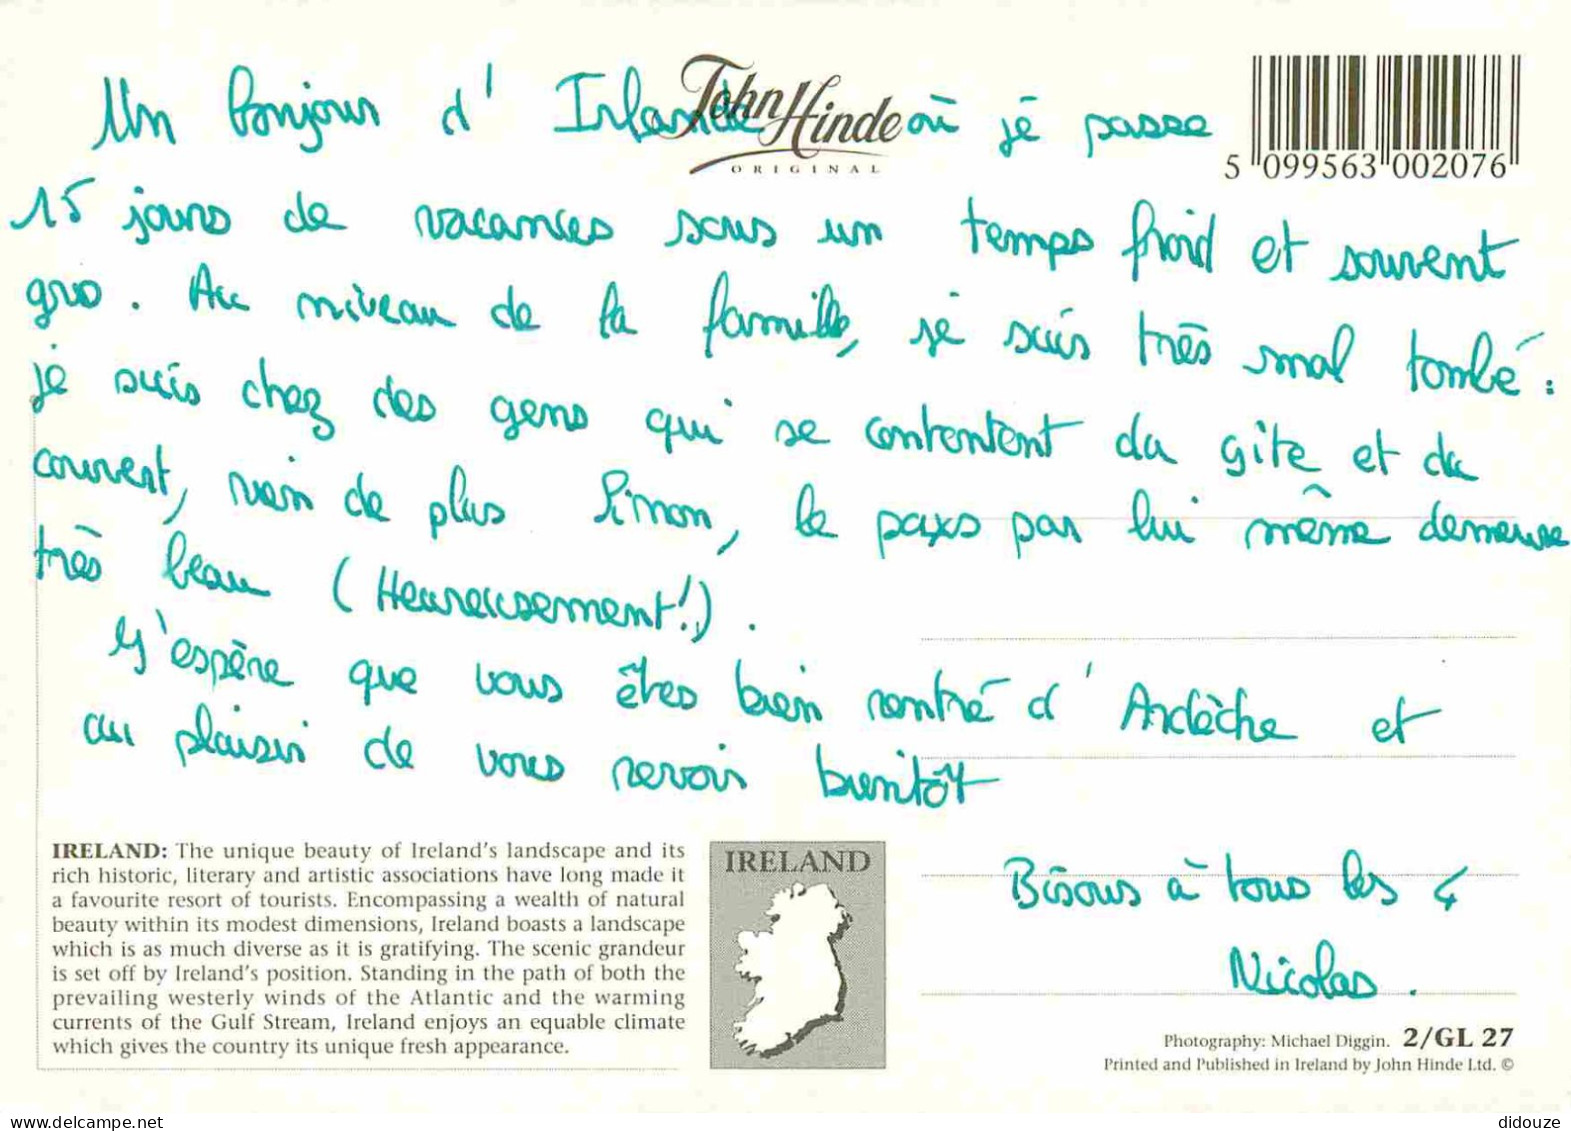 John Hinde
ORIGINAL
5 099563 002076
Un bonjour d'Irlande où je passe
15 jours de vacances sous un temps froid et souvent
gris. Au niveau de la famille, je suis très mal tombé :
je suis chez des gens qui se contentent du gite et du
couvert, rien de plus. Sinon, le pays par lui même demeure
très beau (Heureusement!).
J'espère que vous êtes bien rentré d'Ardèche et
au plaisir de vous revoir bientôt
Bisous à tous les 4
Nicolas.
IRELAND: The unique beauty of Ireland's landscape and its
rich historic, literary and artistic associations have long made it
a favourite resort of tourists. Encompassing a wealth of natural
beauty within its modest dimensions, Ireland boasts a landscape
which is as much diverse as it is gratifying. The scenic grandeur
is set off by Ireland's position. Standing in the path of both the
prevailing westerly winds of the Atlantic and the warming
currents of the Gulf Stream, Ireland enjoys an equable climate
which gives the country its unique fresh appearance.
IRELAND
Photography: Michael Diggin. 2/GL 27
Printed and Published in Ireland by John Hinde Ltd. ©
delcampe.net
didouze